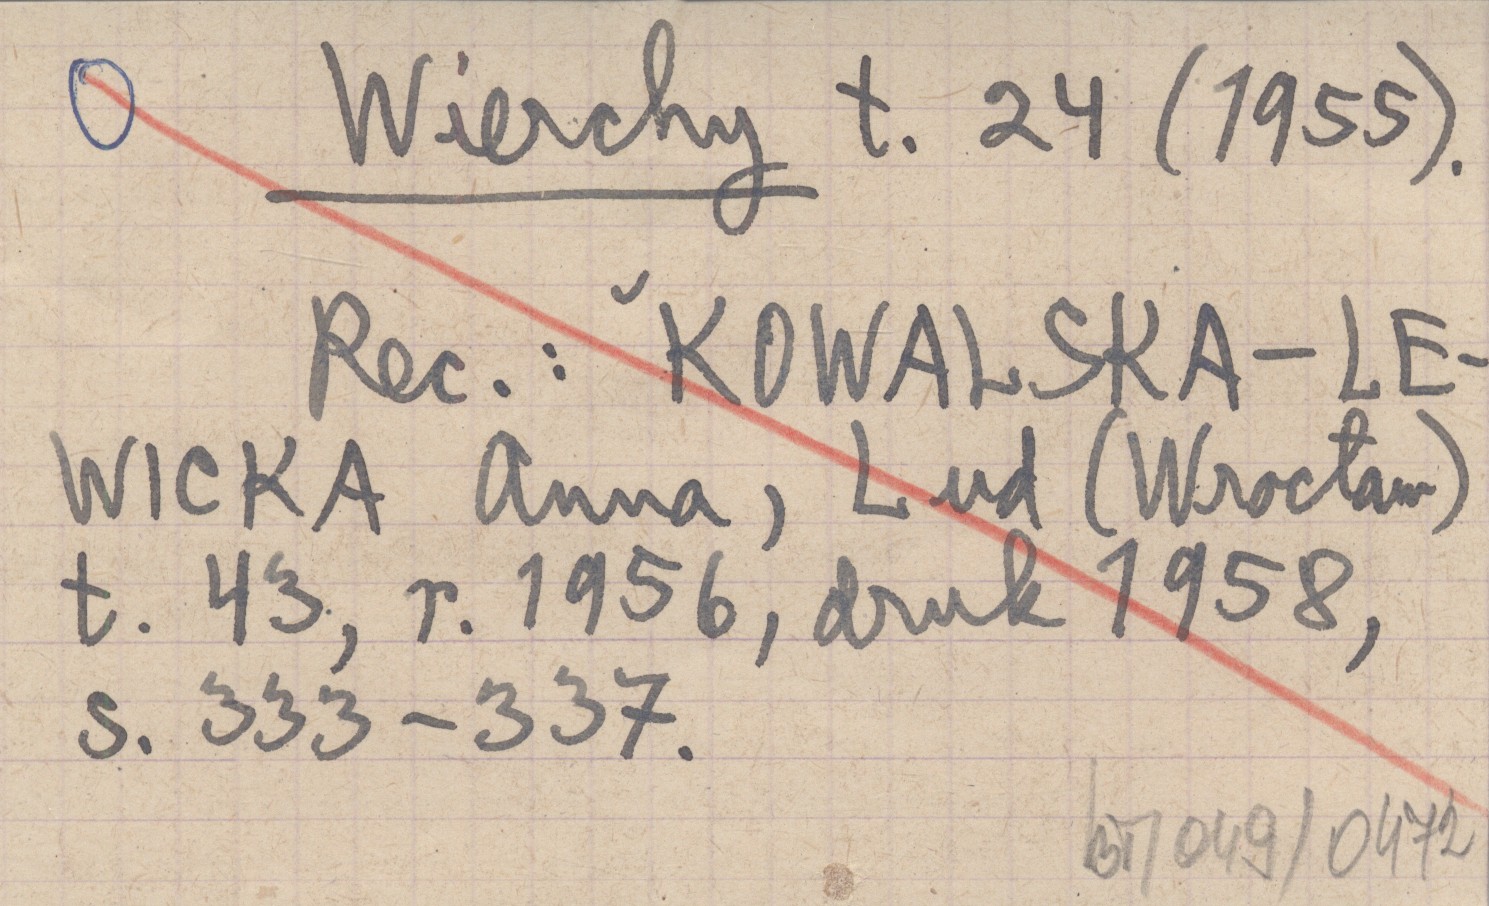 Wierchy t. 24 (1955).
Rec.: KOWALSKA-LE-
WICKA Anna, Lud (Wrocław)
t. 43, r. 1956, druk 1958,
s. 333-337.
049/0472